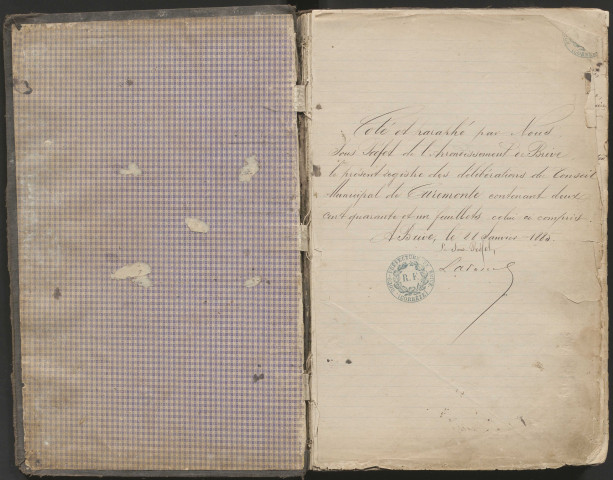 Coté et paraphé par Nous
Sous Préfet de l'Arrondissement de Brive
le présent registre des délibérations du Conseil
Municipal de Curemonte contenant deux
cent quarante et un feuillets celui ci compris
A Brive, le 21 Janvier 188
Le Sous Préfet,
R.F.
(CORRÈZE)